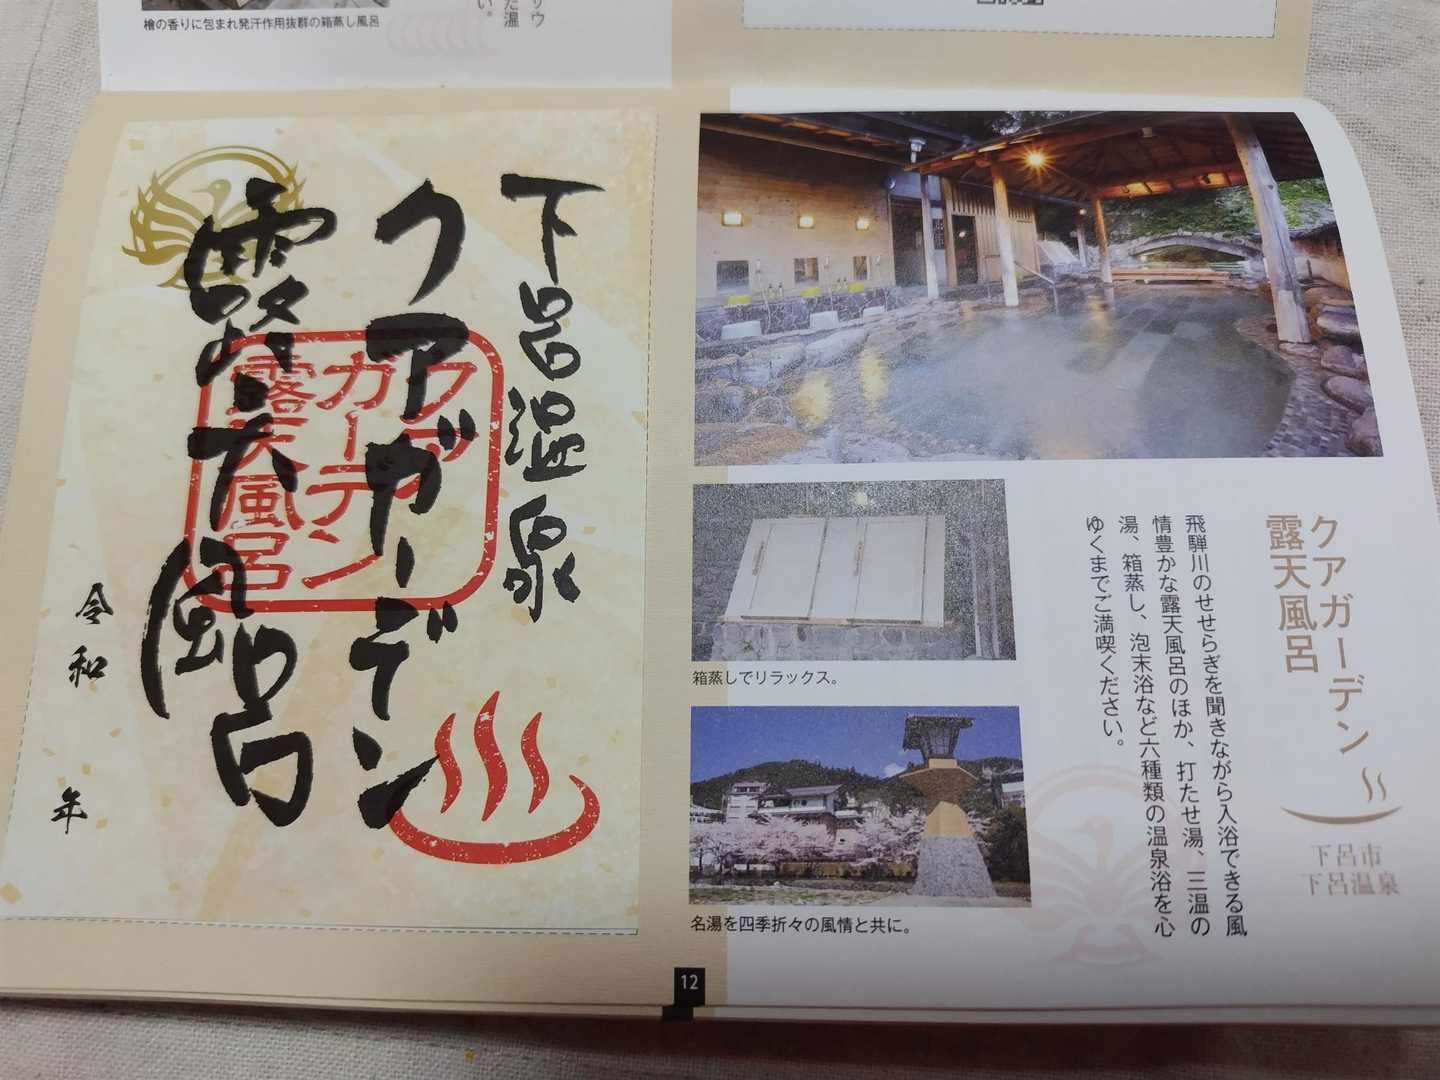 檜の香りに包まれ発汗作用抜群の箱蒸し風呂
下呂温泉
クアガーデン
露天風呂
クア
ガーデン
露天風呂
令和 年
クアガーデン
露天風呂
下呂市
下呂温泉
飛騨川のせせらぎを聞きながら入浴できる風
情豊かな露天風呂のほか、打たせ湯、三温の
湯、箱蒸し、泡末浴など六種類の温泉浴を心
ゆくまでご満喫ください。
箱蒸しでリラックス。
名湯を四季折々の風情と共に。
12